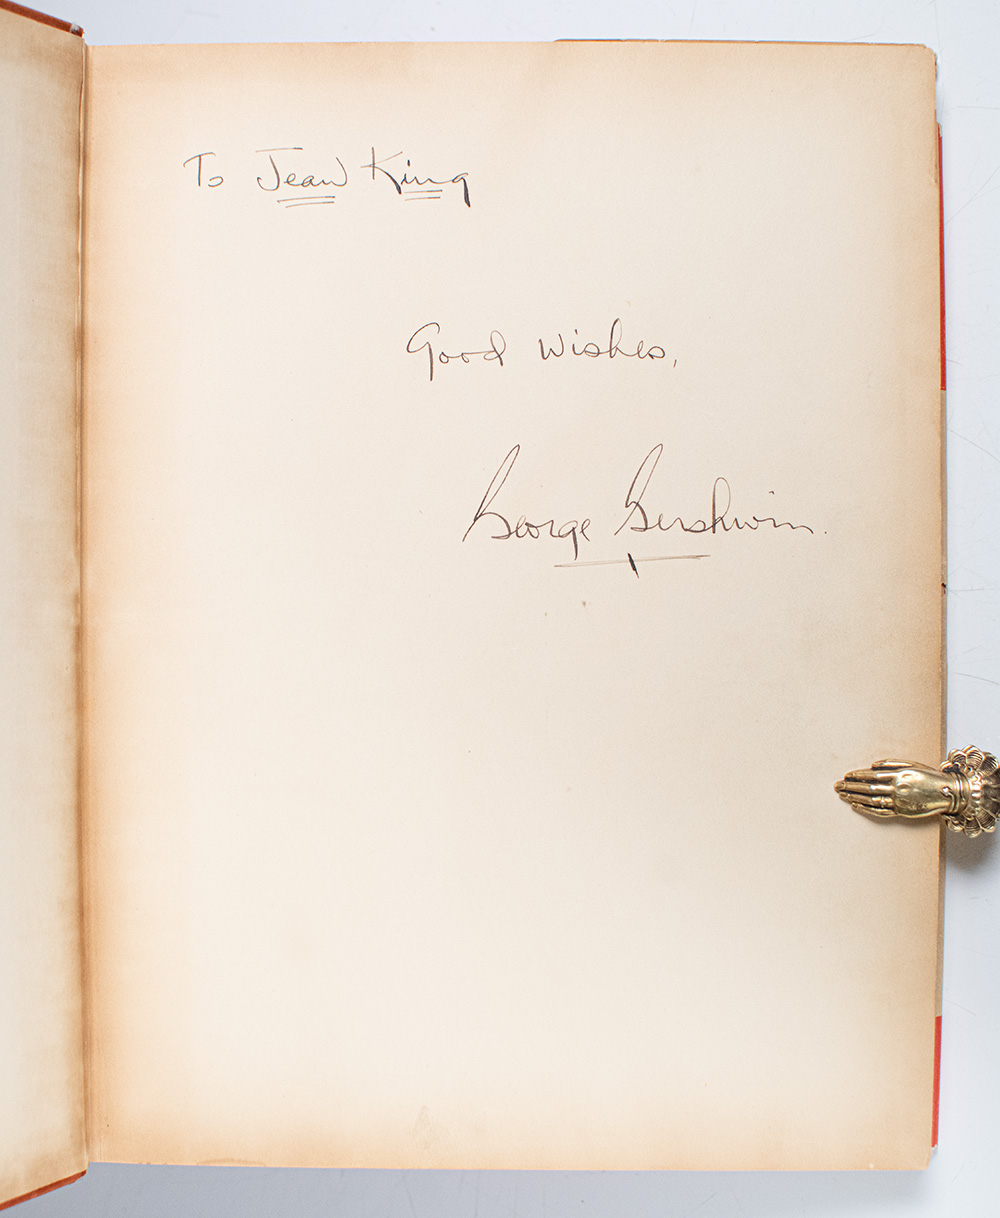 To Jean King
Good wishes,
George Gershwin.